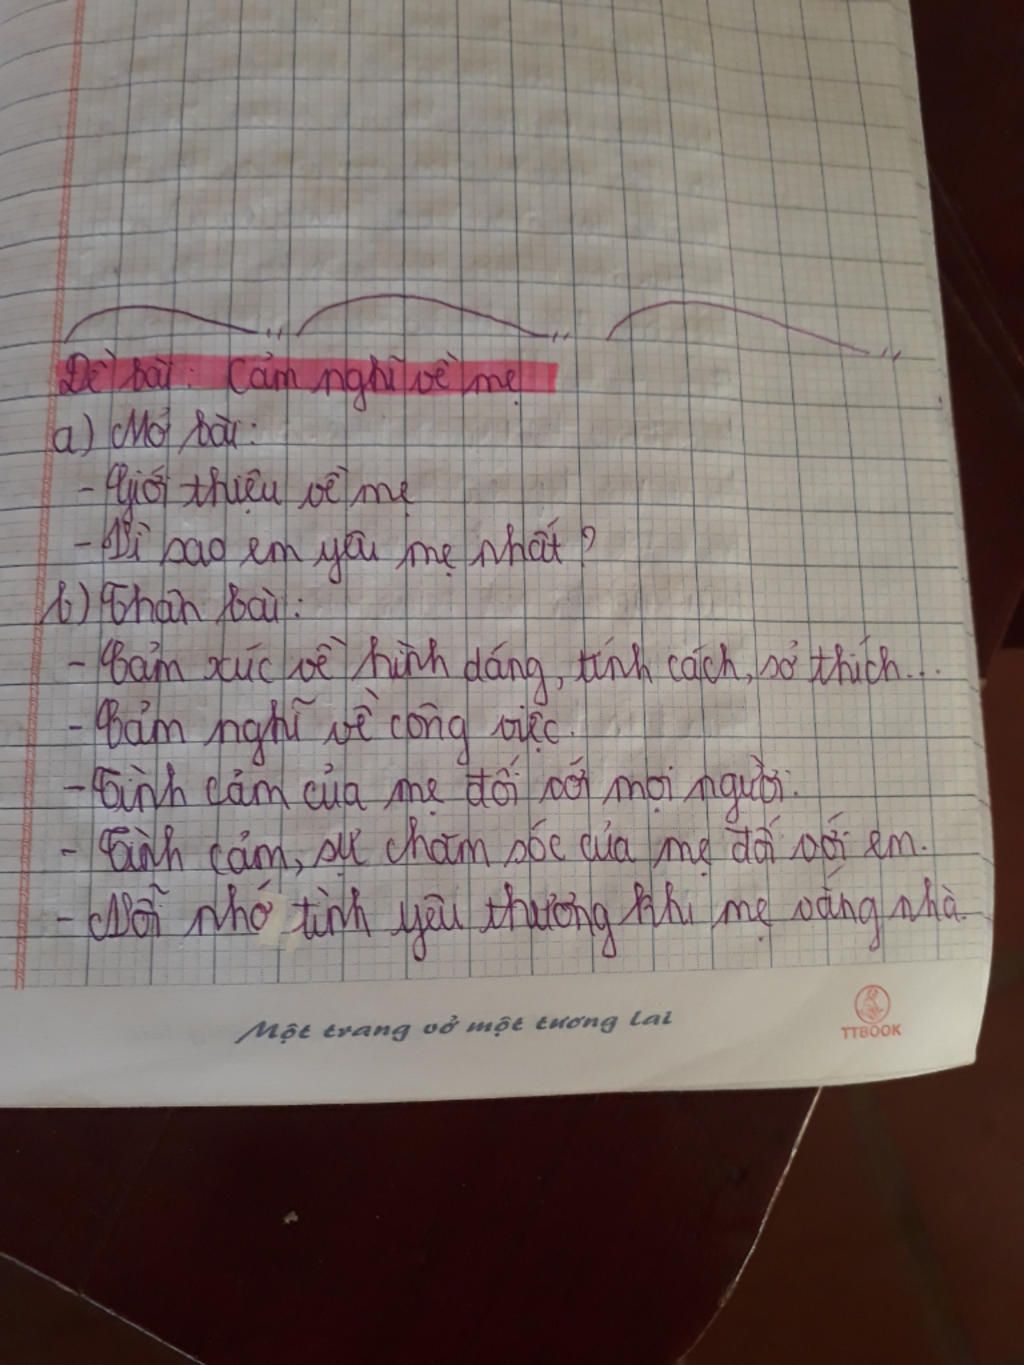 Đề bài: Cảm nghĩ về mẹ
a) Mở bài:
- Giới thiệu về mẹ
- Vì sao em yêu mẹ nhất?
b) Thân bài:
- Cảm xúc về hình dáng, tính cách, sở thích...
- Cảm nghĩ về công việc.
- Tình cảm của mẹ đối với mọi người.
- Tình cảm, sự chăm sóc của mẹ đối với em.
- Nỗi nhớ tình yêu thương khi mẹ vắng nhà.
Một trang vở một tương lai
TTBOOK